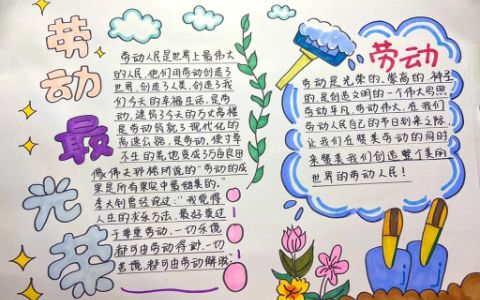 劳动最光荣
劳动人民是世界上最伟大
的人民,他们用劳动创造了
世界,创造了人类,创造了我
们今天的幸福生活,是劳
动,建筑了今天的万丈高楼
是劳动筑就了现代化的
高速公路,是劳动,使寸草
不生的荒地变成了万亩良田
像伟大那样所说的"劳动的成
果是所有果实中最甜美的。"
李大钊曾经说过:"我觉得
人生的求乐方法,最好莫过
于尊重劳动。一切乐境
都可由劳动得动,一切
苦境,都可由劳动解脱。
劳动
劳动是光荣的、崇高的、神圣
的,是创造文明的一个伟大号照
劳动平凡,劳动伟大,在我们
劳动人民自己的节日到来之际,
让我们在赞美劳动的同时
来赞美我们创造整个美丽
世界的劳动人民!